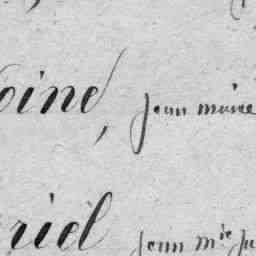 oine, jean marie
riel jean mie ju